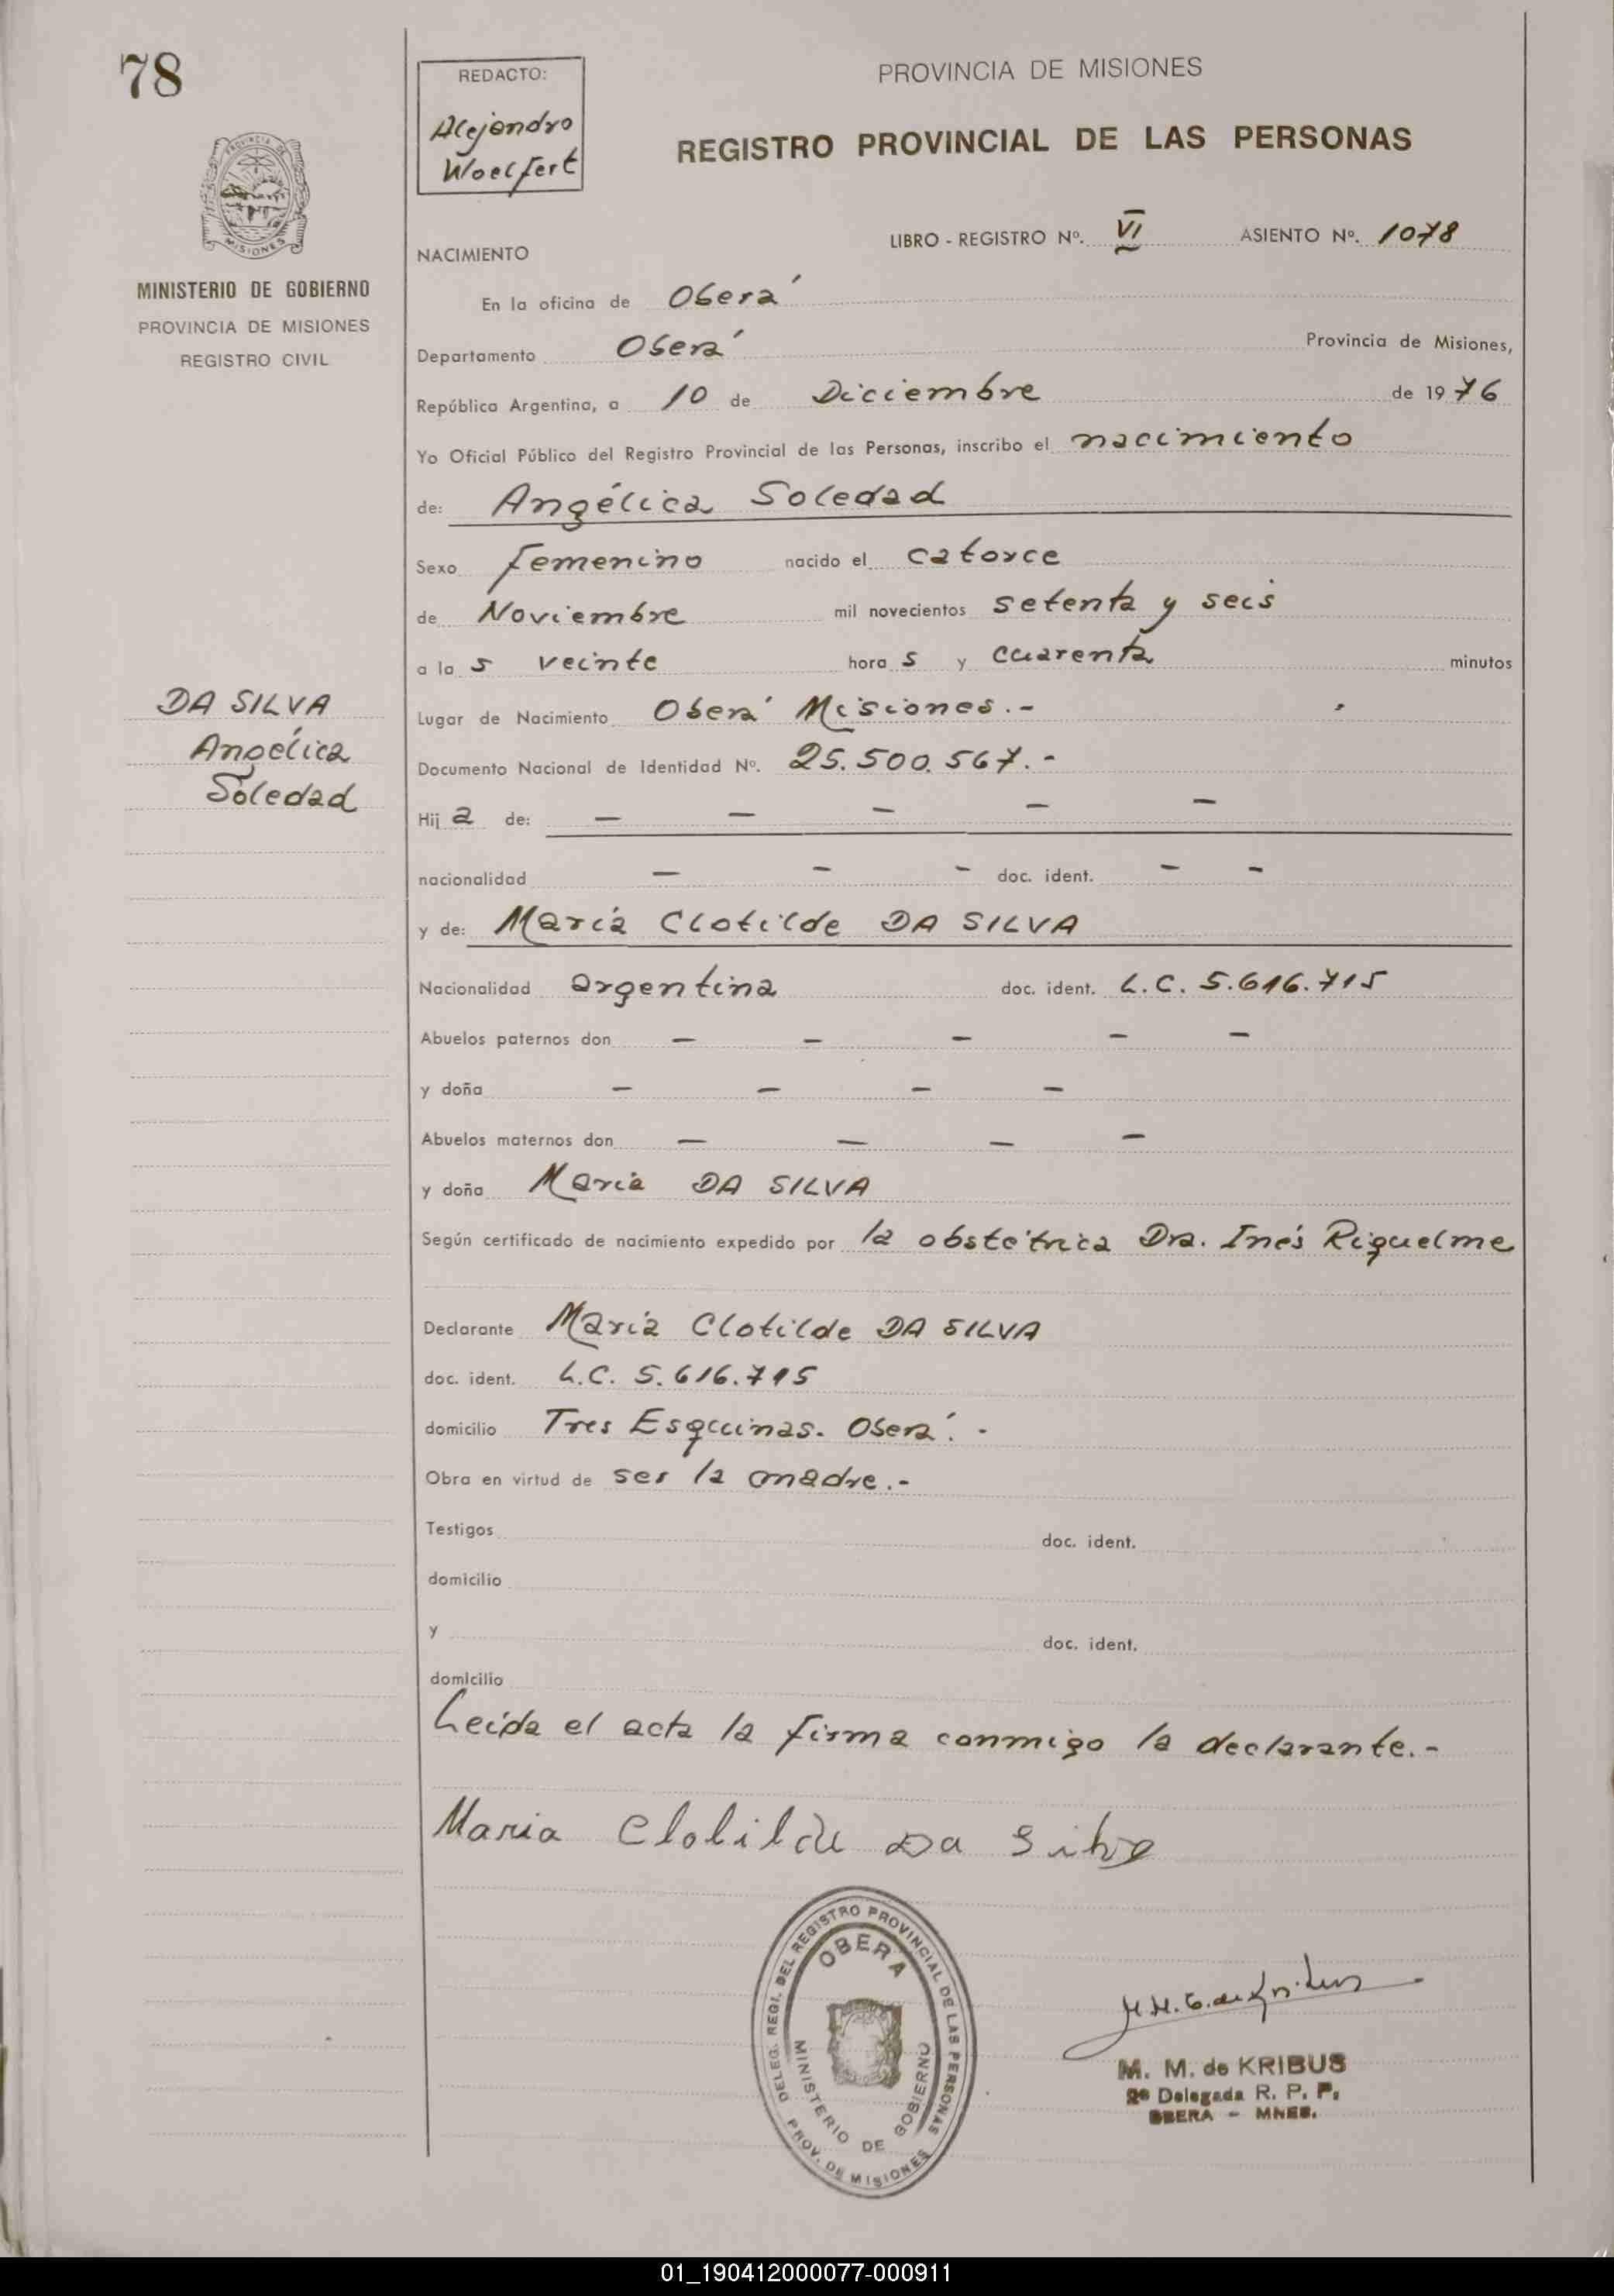 78
REDACTO:
Alejandro
Woelfert
PROVINCIA DE MISIONES
REGISTRO PROVINCIAL DE LAS PERSONAS
MISIONES
MINISTERIO DE GOBIERNO
PROVINCIA DE MISIONES
REGISTRO CIVIL
LIBRO - REGISTRO Nº. VI ASIENTO Nº. 1078
NACIMIENTO
En la oficina de Oberá
Departamento Oberá Provincia de Misiones,
República Argentina, a 10 de Diciembre de 1976
Yo Oficial Público del Registro Provincial de las Personas, inscribo el nacimiento
de: Angélica Soledad
Sexo femenino nacido el catorce
de Noviembre mil novecientos setenta y seis
a las veinte horas y cuarenta minutos
DA SILVA
Angélica
Soledad
Lugar de Nacimiento Oberá Misiones.-
Documento Nacional de Identidad Nº. 25.500.567.-
Hija de: — — — — —
nacionalidad — - - doc. ident. - -
y de: María Clotilde DA SILVA
Nacionalidad argentina doc. ident. L.C. 5.616.715
Abuelos paternos don — — — — —
y doña — — — —
Abuelos maternos don — — — —
y doña María DA SILVA
Según certificado de nacimiento expedido por la obstétrica Dra. Inés Riquelme
Declarante María Clotilde DA SILVA
doc. ident. L.C. 5.616.715
domicilio Tres Esquinas. Oberá.-
Obra en virtud de ser la madre.-
Testigos doc. ident.
domicilio
y doc. ident.
domicilio
Leída el acta la firma conmigo la declarante.-
Maria Clotilde Da Silva
DELEG. REGI. DEL REGISTRO PROVINCIAL DE LAS PERSONAS
OBERA
MINISTERIO DE GOBIERNO
PROV. DE MISIONES
M. M. de KRIBUS
2ª Delegada R. P. P.
OBERA - MNES.
01_190412000077-000911